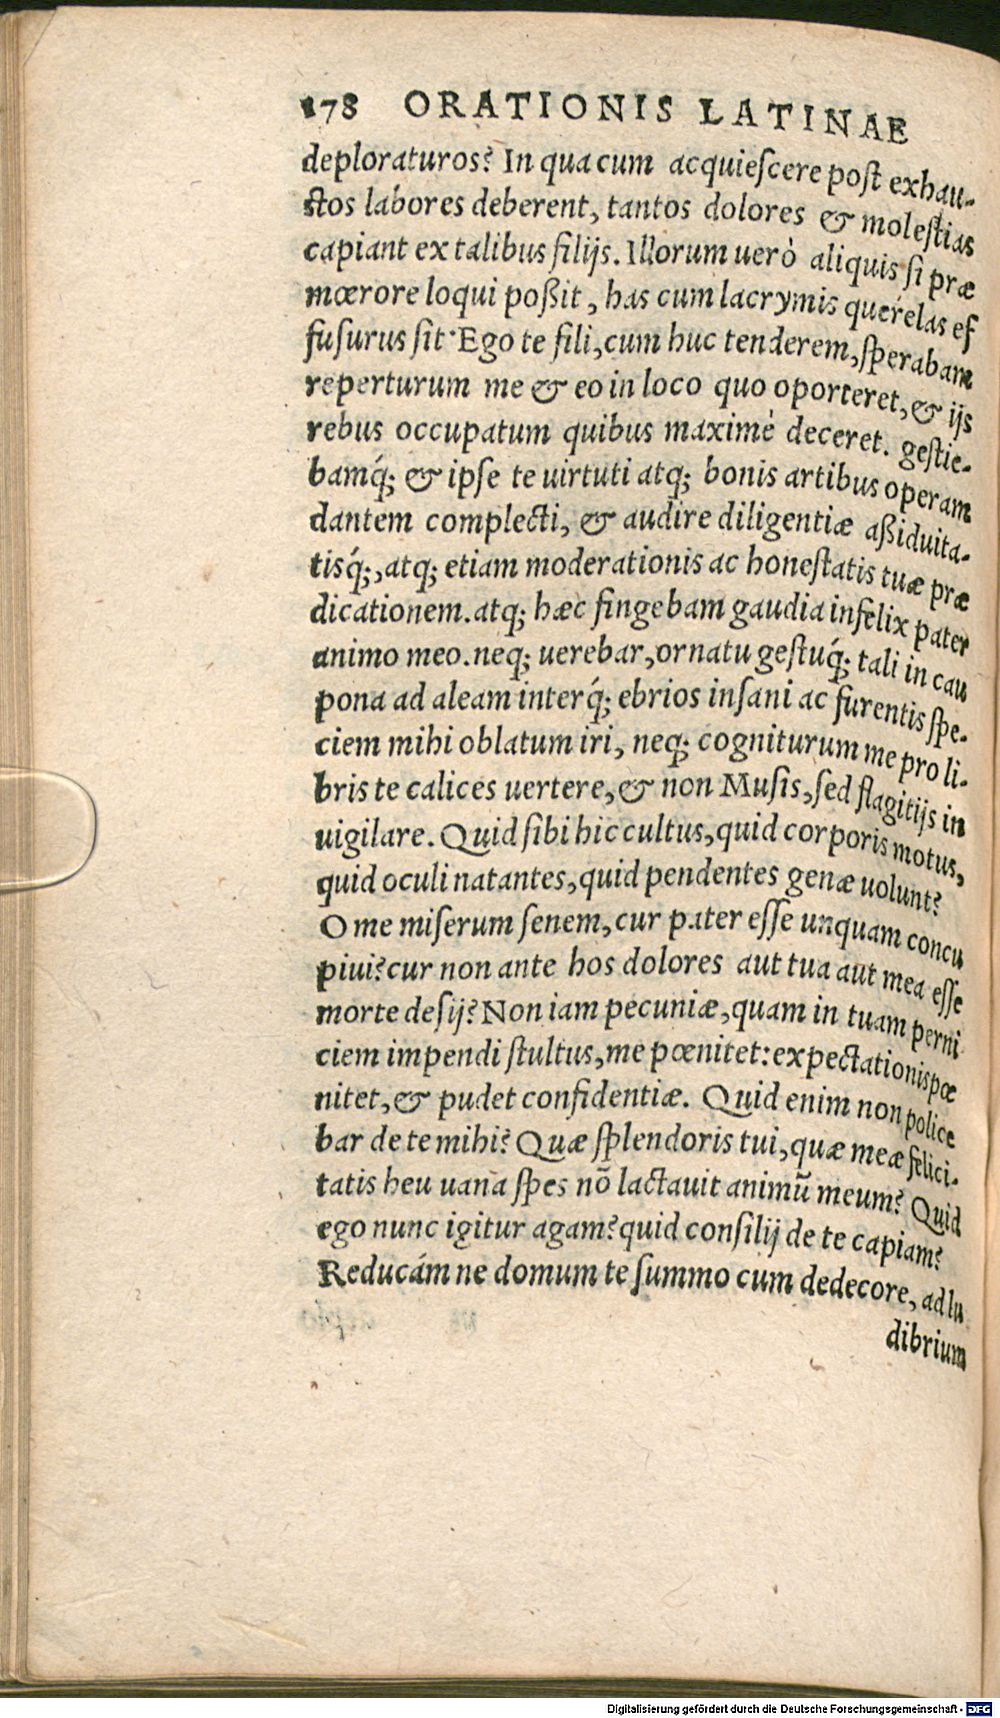 178 ORATIONIS LATINAE
deploraturos? In qua cum acquieſcere poſt exhau-
ſtos labores deberent, tantos dolores & moleſtias
capiant ex talibus filijs. Illorum uerò aliquis ſi præ
mœrore loqui poßit, has cum lacrymis querelas ef
fuſurus ſit· Ego te fili, cum huc tenderem, ſperabam
reperturum me & eo in loco quo oporteret, & ijs
rebus occupatum quibus maximè deceret. geſtie-
bamq́; & ipſe te uirtuti atq; bonis artibus operam
dantem complecti, & audire diligentiæ aßiduita-
tisq́;, atq; etiam moderationis ac honeſtatis tuæ præ
dicationem. atq; hæc fingebam gaudia infelix pater
animo meo. neq; uerebar, ornatu geſtuq́; tali in cau
pona ad aleam interq́; ebrios inſani ac furentis ſpe-
ciem mihi oblatum iri, neq; cogniturum me pro li-
bris te calices uertere, & non Muſis, ſed flagitijs in
uigilare. Quid ſibi hic cultus, quid corporis motus,
quid oculi natantes, quid pendentes genæ uolunt?
O me miſerum ſenem, cur pater eſſe unquam concu
piui? cur non ante hos dolores aut tua aut mea eſſe
morte deſij? Non iam pecuniæ, quam in tuam perni
ciem impendi ſtultus, me pœnitet: expectationis pœ
nitet, & pudet confidentiæ. Quid enim non police
bar de te mihi? Quæ ſplendoris tui, quæ meæ felici-
tatis heu uana ſpes nō lactauit animū meum? Quid
ego nunc igitur agam? quid conſilij de te capiam?
Reducám ne domum te ſummo cum dedecore, ad lu
dibrium
Digitalisierung gefördert durch die Deutsche Forschungsgemeinschaft - DFG